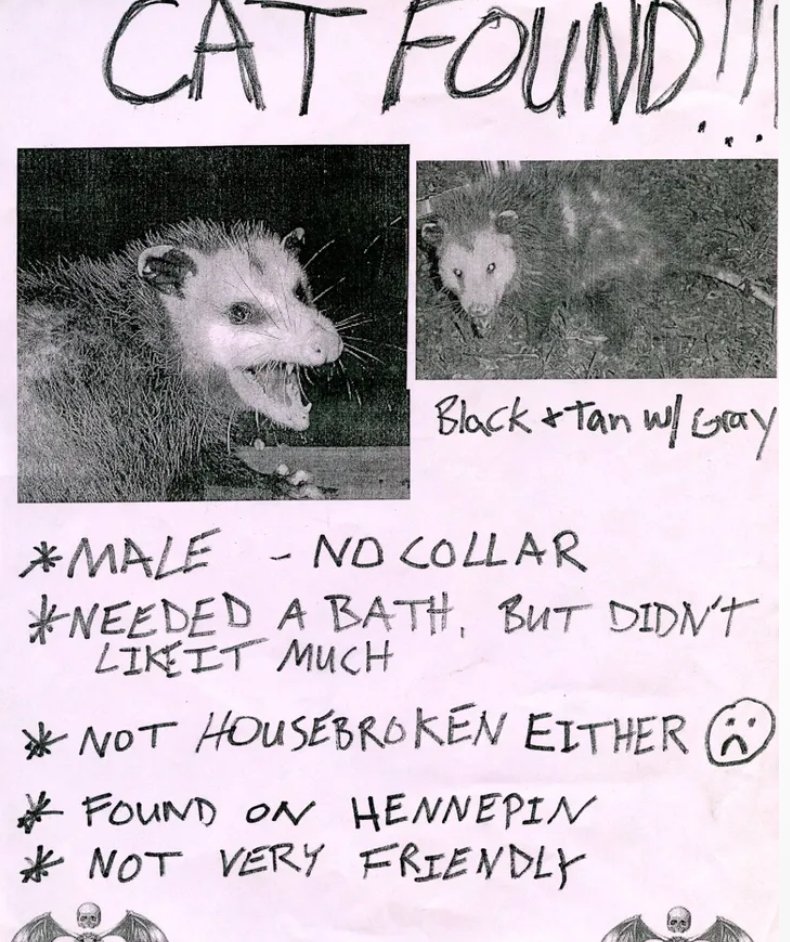 CAT FOUND!!!
Black + Tan w/ Gray
* MALE - NO COLLAR
* NEEDED A BATH, BUT DIDN'T
LIKE IT MUCH
* NOT HOUSEBROKEN EITHER
* FOUND ON HENNEPIN
* NOT VERY FRIENDLY